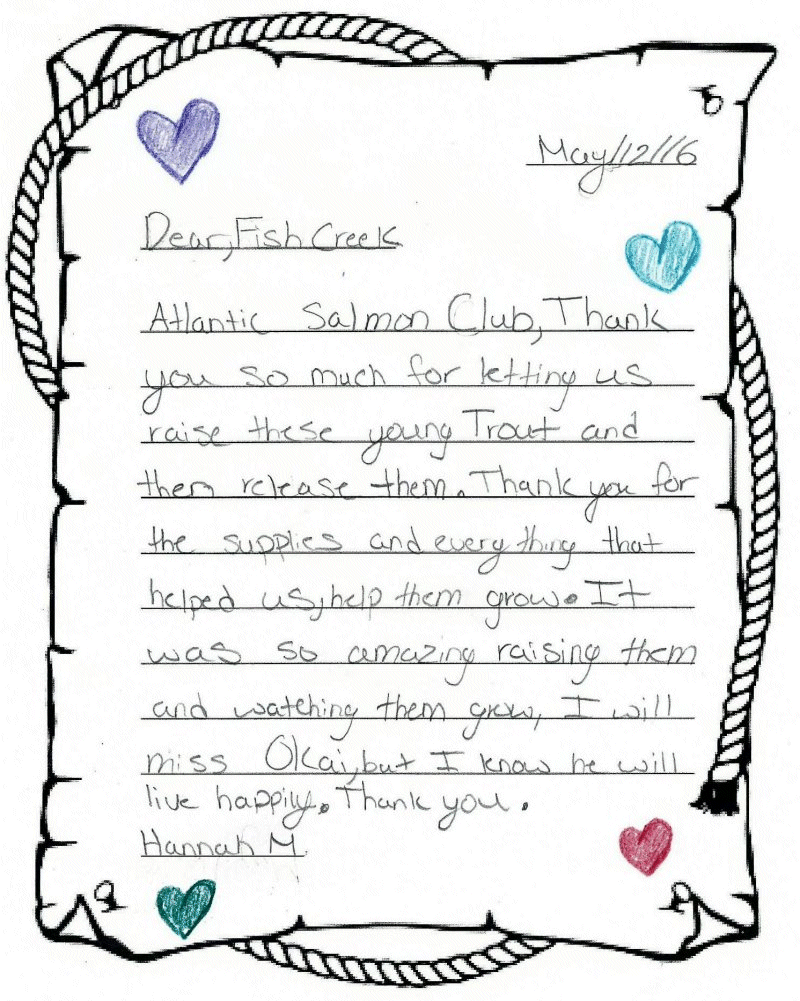 May/12/16
Dear, Fish Creek
Atlantic Salmon Club, Thank
you so much for letting us
raise these young Trout and
them release them. Thank you for
the supplies and everything that
helped us, help them grow. It
was so amazing raising them
and watching them grow, I will
miss Okai, but I know he will
live happily. Thank you.
Hannah M